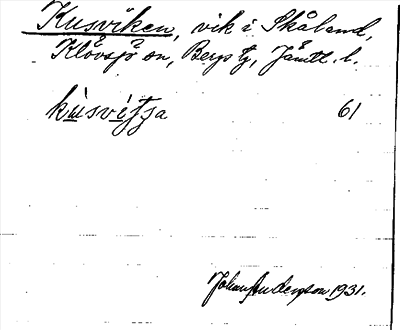 Kusviken, vik i Skåland,
Klövsjö sn, Bergs tg, Jämtl. l.
kùsvítja 61
Johan Anderson 1931.